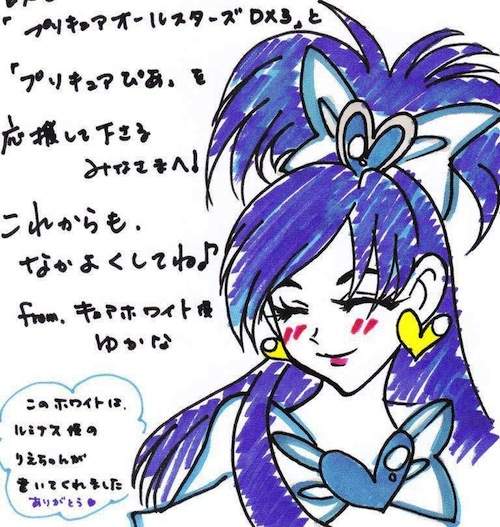 『プリキュアオールスターズDX3』と
「プリキュアぴあ」を
応援して下さる
みなさまへ♪
これからも、
なかよくしてね♪
from.キュアホワイト役
ゆかな
このホワイトは、
ルミナス役の
りえちゃんが
書いてくれました
ありがとう♥